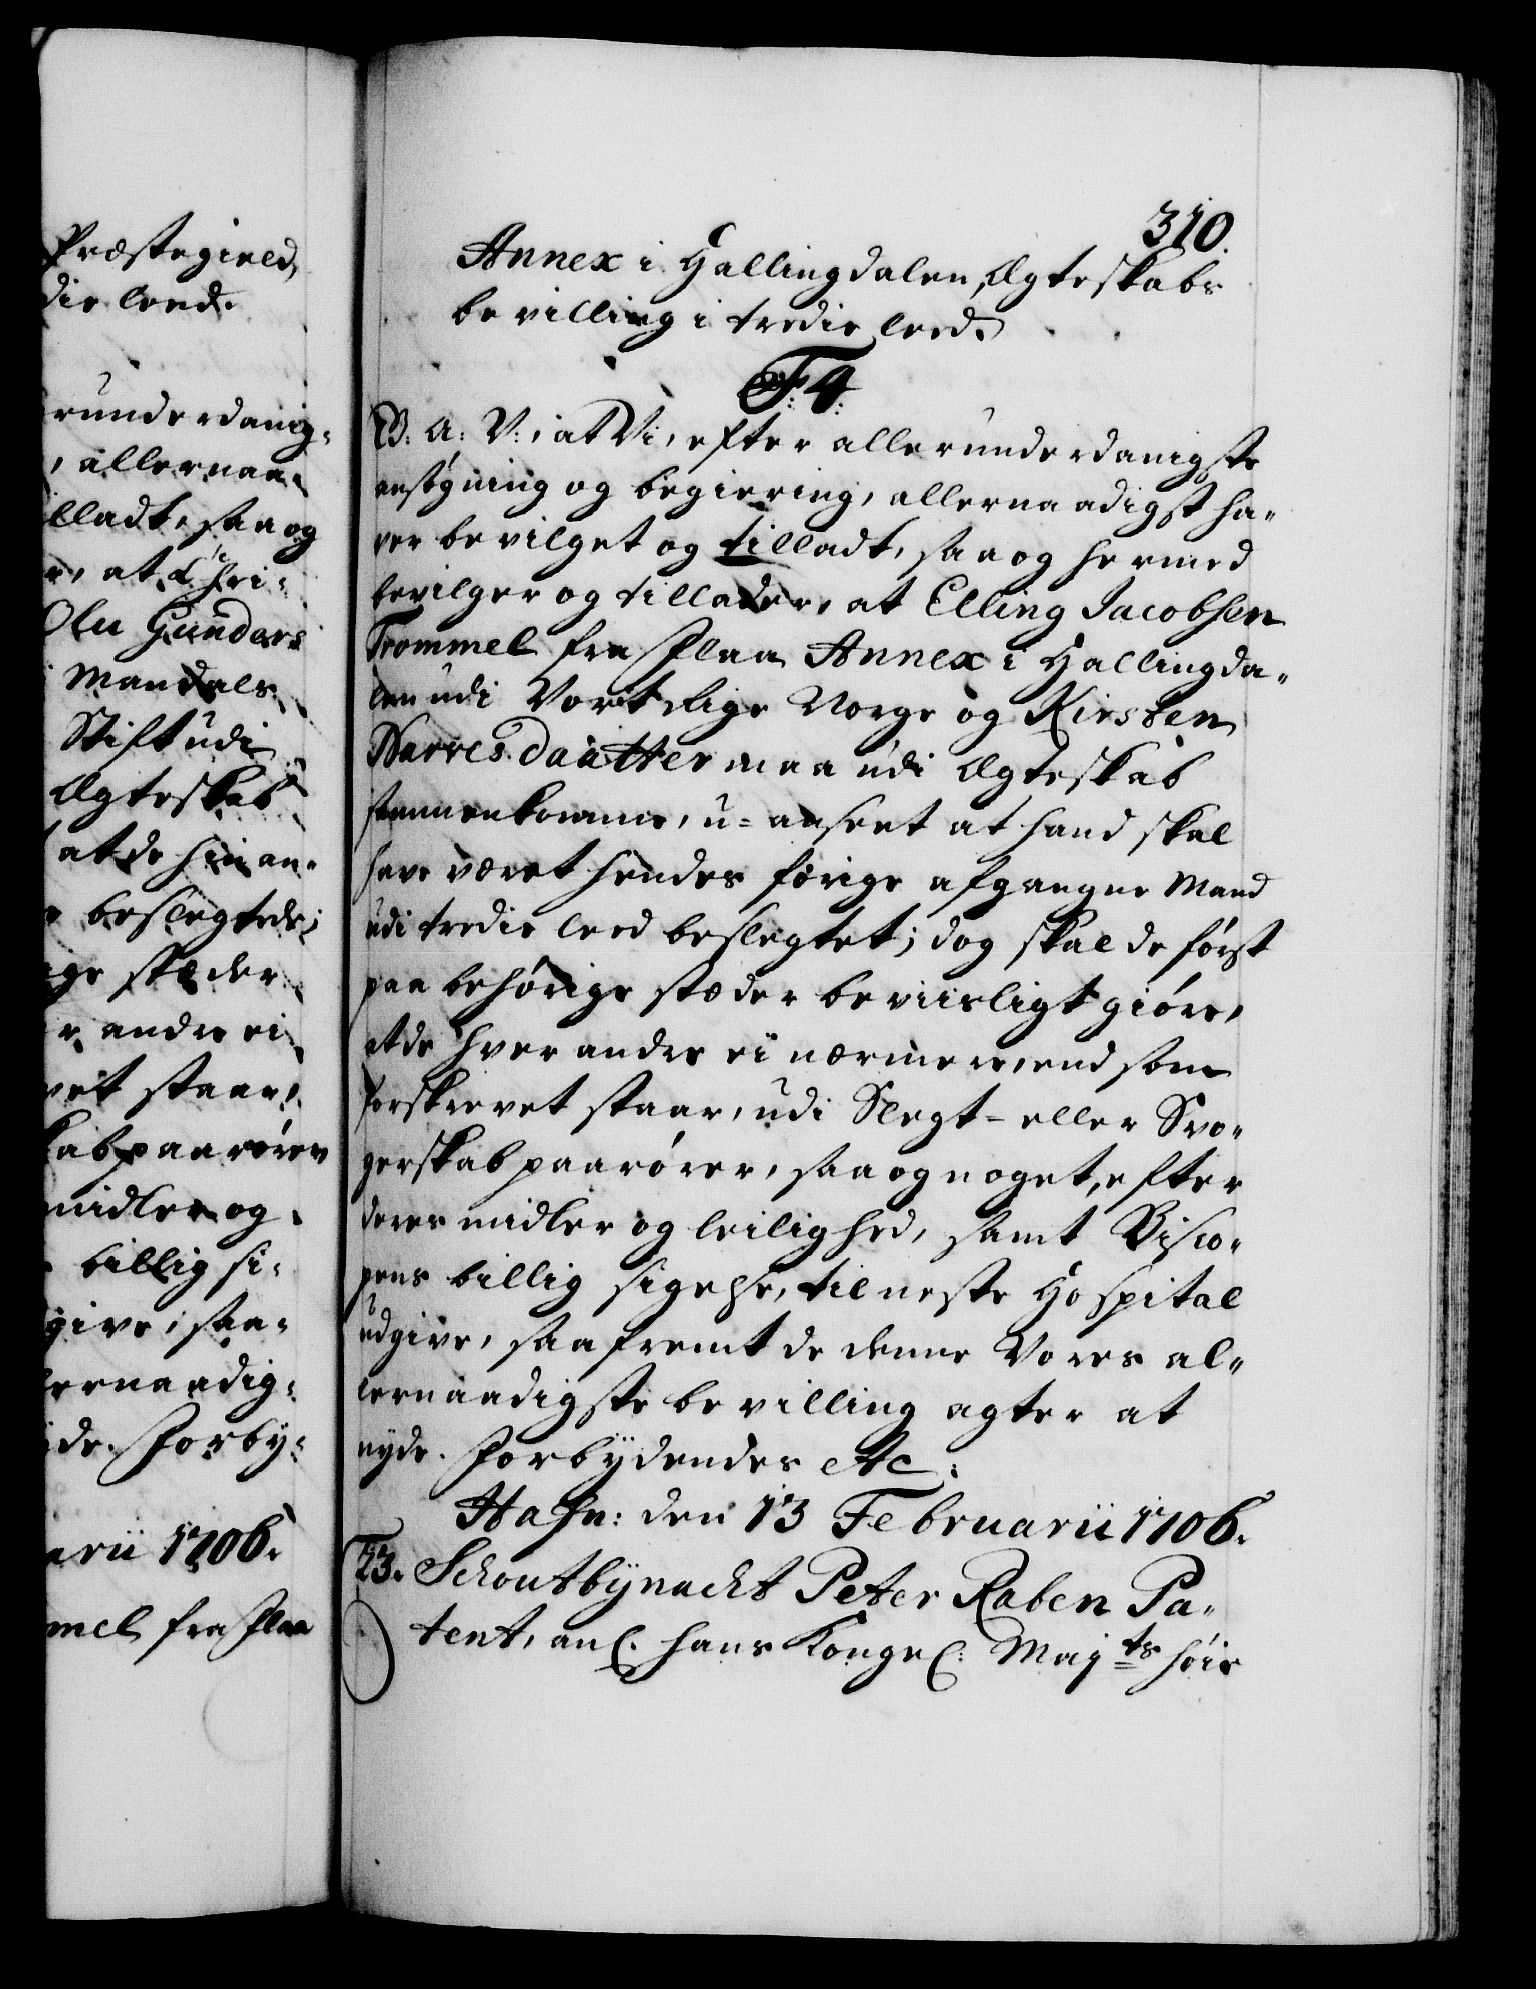 Præstegield,
die leed.
runderdanig-
, allernaa-
lladt, saa og
r, at Chri-
Olu Gunders
Mandals
Stift udi
Ægteskab
at de hinan-
beslegtede;
ge stæder
r, andre ei
vet staar,
kab paarører
midler og
billig si-
give; saa-
lernaadig-
de. Forby-
arii 1706.
mel fra Flaa
310.
Annex i Hallingdalen, Ægteskabs
bevilling i tredie leed.
F4
G. A. V: at Vi, efter allerunderdanigste
ansøgning og begiering, allernaadigst ha-
ver bevilget og tilladt, saa og hermed
bevilger og tillader, at Elling Jacobsen
Trommel fra Flaa Annex i Hallingda-
len udi Vort Rige Norge og Kirsten
Narves daatter maa udi Ægteskab
sammenkomme, u-anseet at hand skal
have været hendes forige afgangne Mand
udi tredie leed beslegtet; dog skal de først
paa behørige stæder beviisligt giøre,
at de hver andre ei nærmere, end som
forskrevet staar, udi Slegt- eller Svo-
gerskab paarører, saa og noget, efter
deres midler og leilighed, samt Bisco-
pens billig sigelse, til neste Hospital
udgive, saafremt de denne Vores al-
lernaadigste bevilling agter at
nyde. Forbydendes etc:
Hafn: den 13 Februarii 1706.
23. Schoutbynacht Peter Raben Pa-
tent, anl. Hans Kongel: Maj ts høie